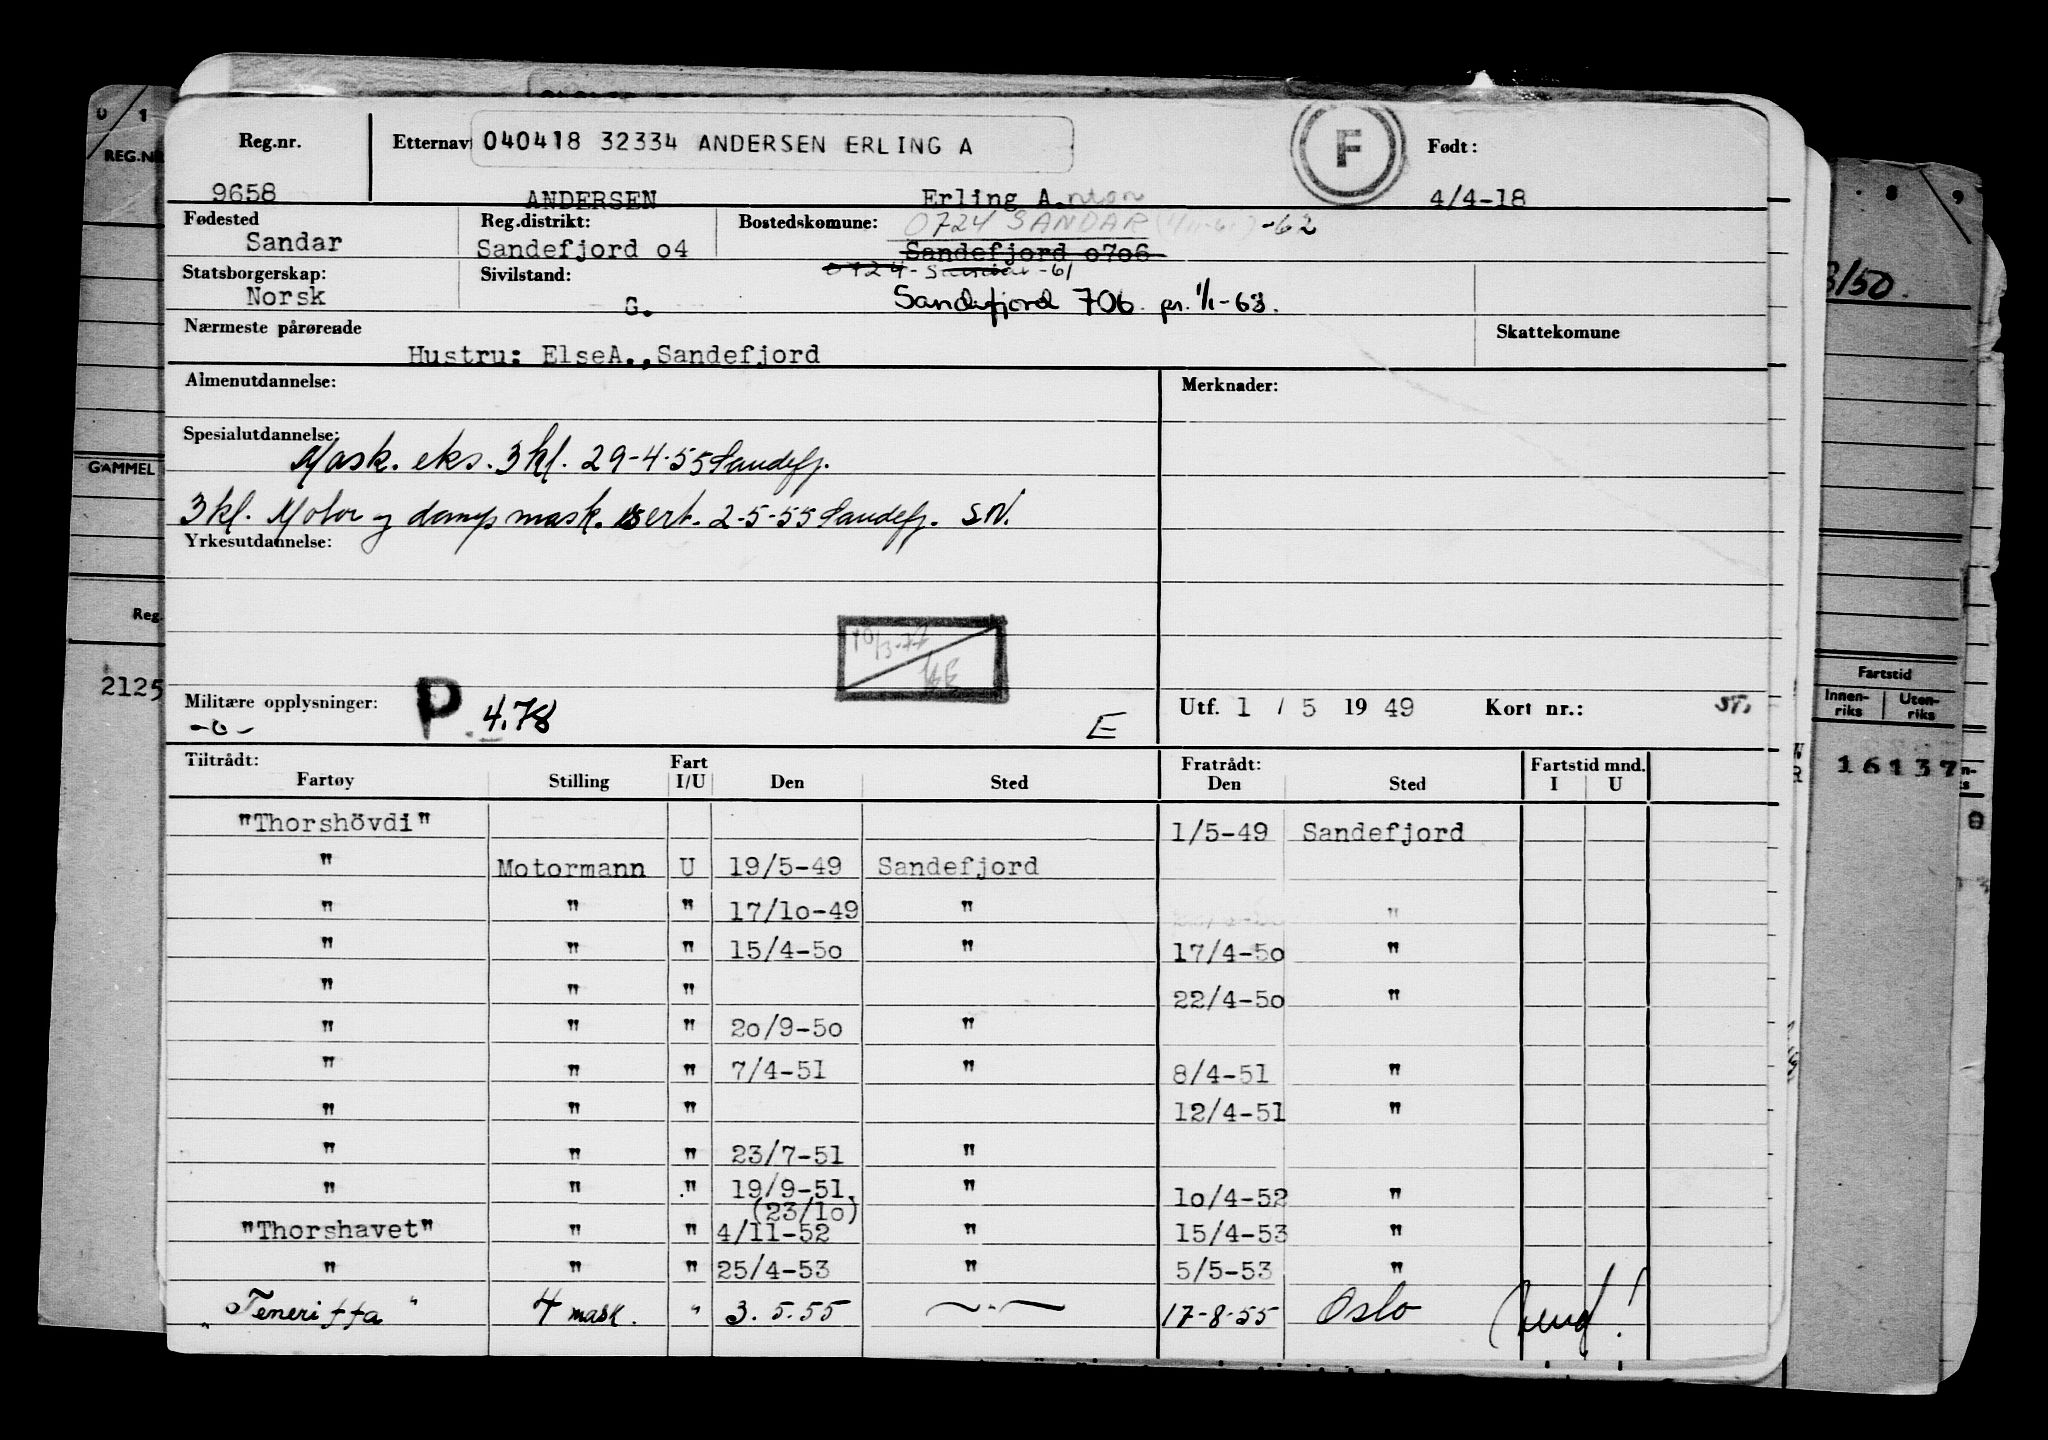 Reg.nr. Etternav 040418 32334 ANDERSEN ERLING A F Født:
9658 ANDERSEN Erling A.nton 4/4-18
Fødested Reg.distrikt: Bostedskomune: 0724 SANDAR -62
Sandar Sandefjord o4 Sandefjord o7o6
Statsborgerskap: Sivilstand: 0724-Sandar-61
Norsk G. Sandefjord 706 pr. 1/1-63.
Nærmeste pårørende Skattekomune
Hustru: ElseA.,Sandefjord
Almenutdannelse: Merknader:
Spesialutdannelse:
Mask. eks. 3 kl. 29-4-55 Sandefj.
3 kl. Motor og damp mask. sert. 2-5-55 Sandefj. S.N.
Yrkesutdannelse:
10/3-77
Militære opplysninger: P 4.78 E Utf. 1 / 5 19 49 Kort nr.: ST.
-o-
Tiltrådt: Fart Fratrådt: Fartstid mnd.
Fartøy Stilling I/U Den Sted Den Sted I U
"Thorshövdi" 1/5-49 Sandefjord
" Motormann U 19/5-49 Sandefjord
" " " 17/1o-49 " "
" " " 15/4-5o " 17/4-5o "
" " " 22/4-5o "
" " " 2o/9-5o "
" " " 7/4-51 " 8/4-51 "
" " " 12/4-51 "
" " " 23/7-51 "
" " " 19/9-51. " 1o/4-52 "
(23/1o)
"Thorshavet" " " 4/11-52 " 15/4-53 "
" " " 25/4-53 " 5/5-53 "
"Teneriffa" 4 mask. " 3.5.55 —"— 17-8-55 Oslo
0 1
REG.NR
GAMMEL
Reg.
2125
8 9
3/50.
Fartstid
Innen-riks Uten-riks
16137